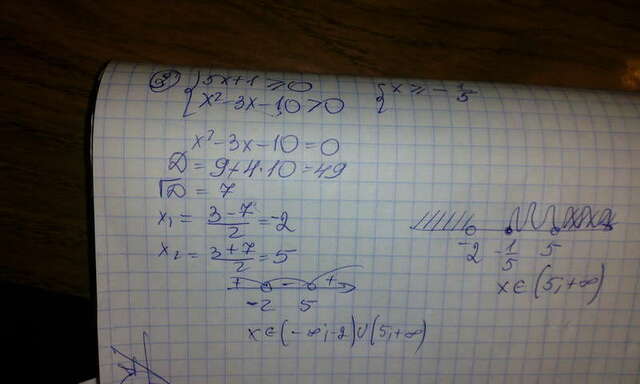 ② { 5x+1 ≥ 0   { x ≥ -1/5
x²-3x-10 > 0
x²-3x-10=0
D = 9+4·10=49
√D = 7
x₁ = (3-7)/2 = -2
x₂ = (3+7)/2 = 5
+ - +
-2 5
x∈(-∞;-2)∪(5,+∞)
-2 -1/5 5
x∈(5,+∞)